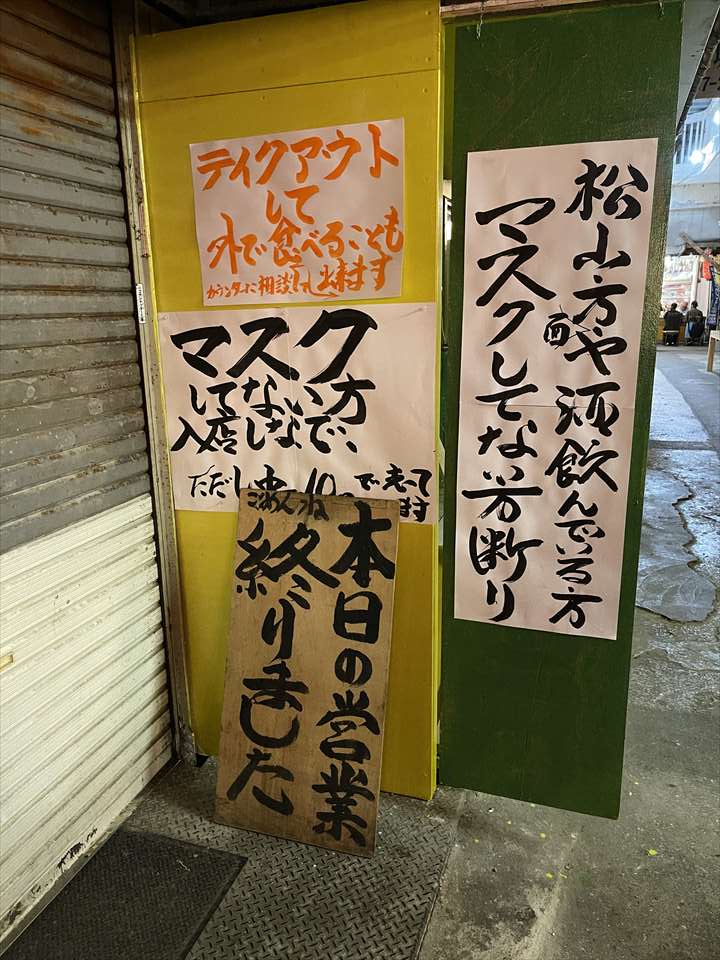 テイクアウト
して
外で食べることも
カウンターに相談し
出来ます
マスク
してない方
入店しなで、
ただし
で売って
ます
ごめんね
本日の営業
終りました
松山方や酒飲んでいる方
マスクしてない方断り